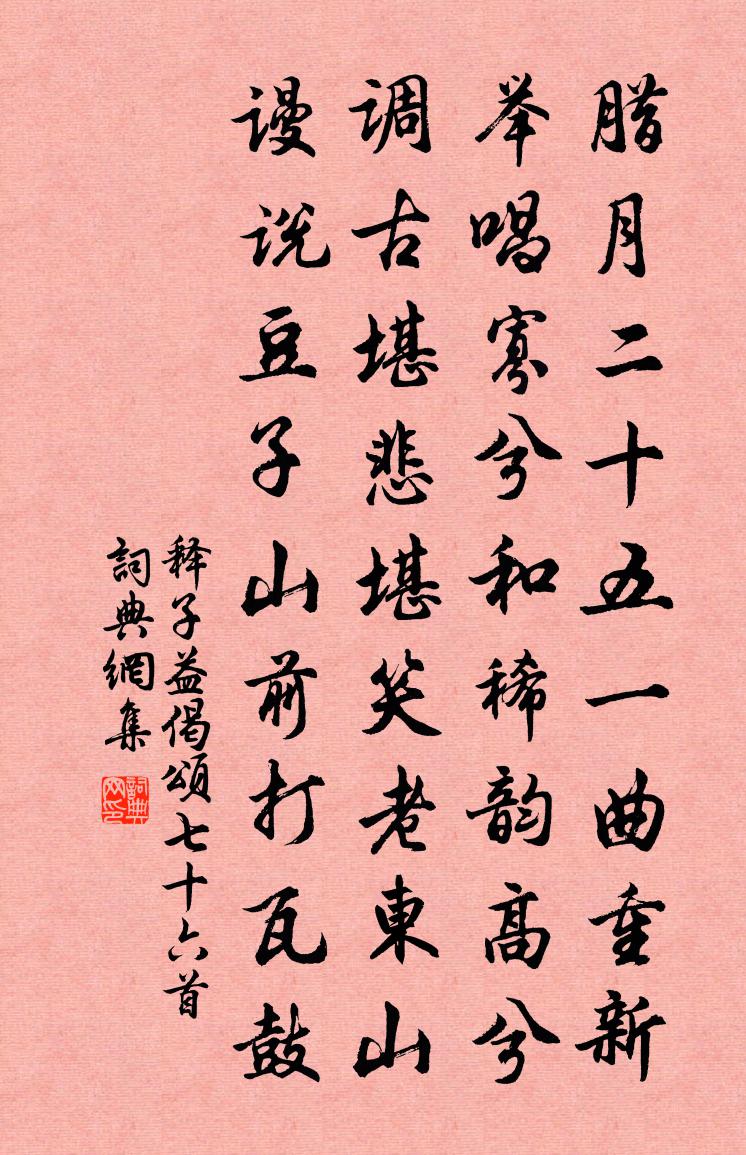 腊月二十五一曲重新
举唱寡兮和稀韵高兮
调古堪悲堪笑老東山
谩说豆子山前打瓦鼓
释子益偈頌七十六首
詞典網集
詞典
网印